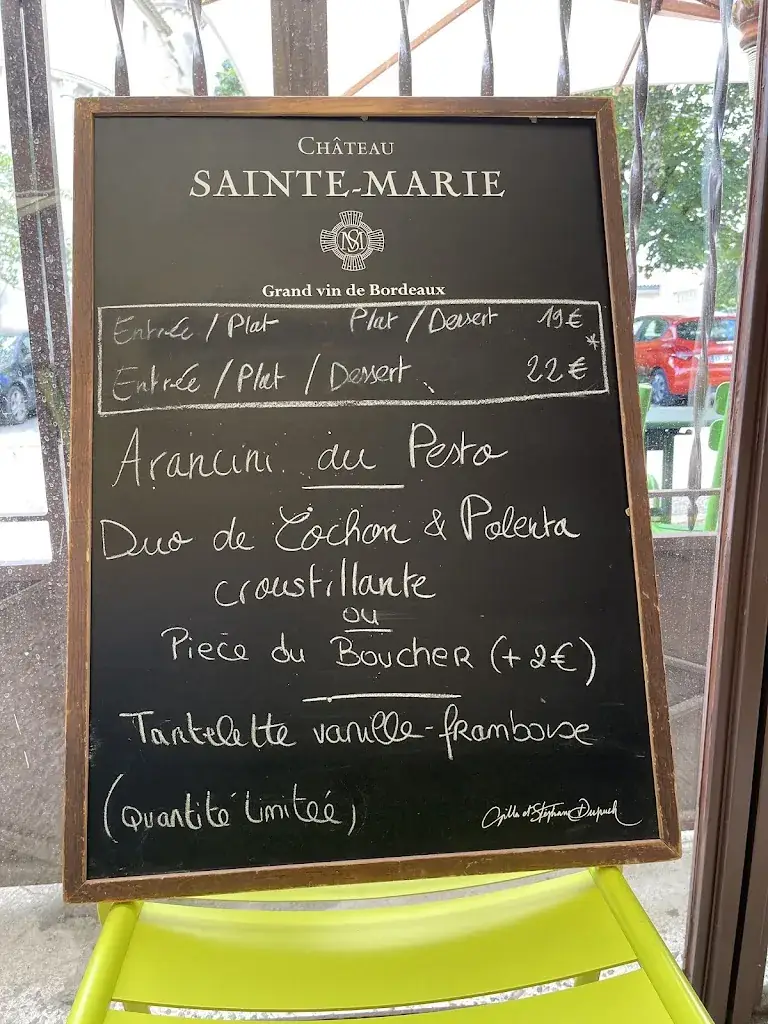 CHÂTEAU
SAINTE-MARIE
SM
Grand vin de Bordeaux
Entrée / Plat Plat / Dessert 19€
*
Entrée / Plat / Dessert 22€
Arancini au Pesto
Duo de Cochon & Polenta
croustillante
ou
Pièce du Boucher (+2€)
Tartelette vanille-framboise
(Quantité limitée)
Gilles et Stéphane Dupuch